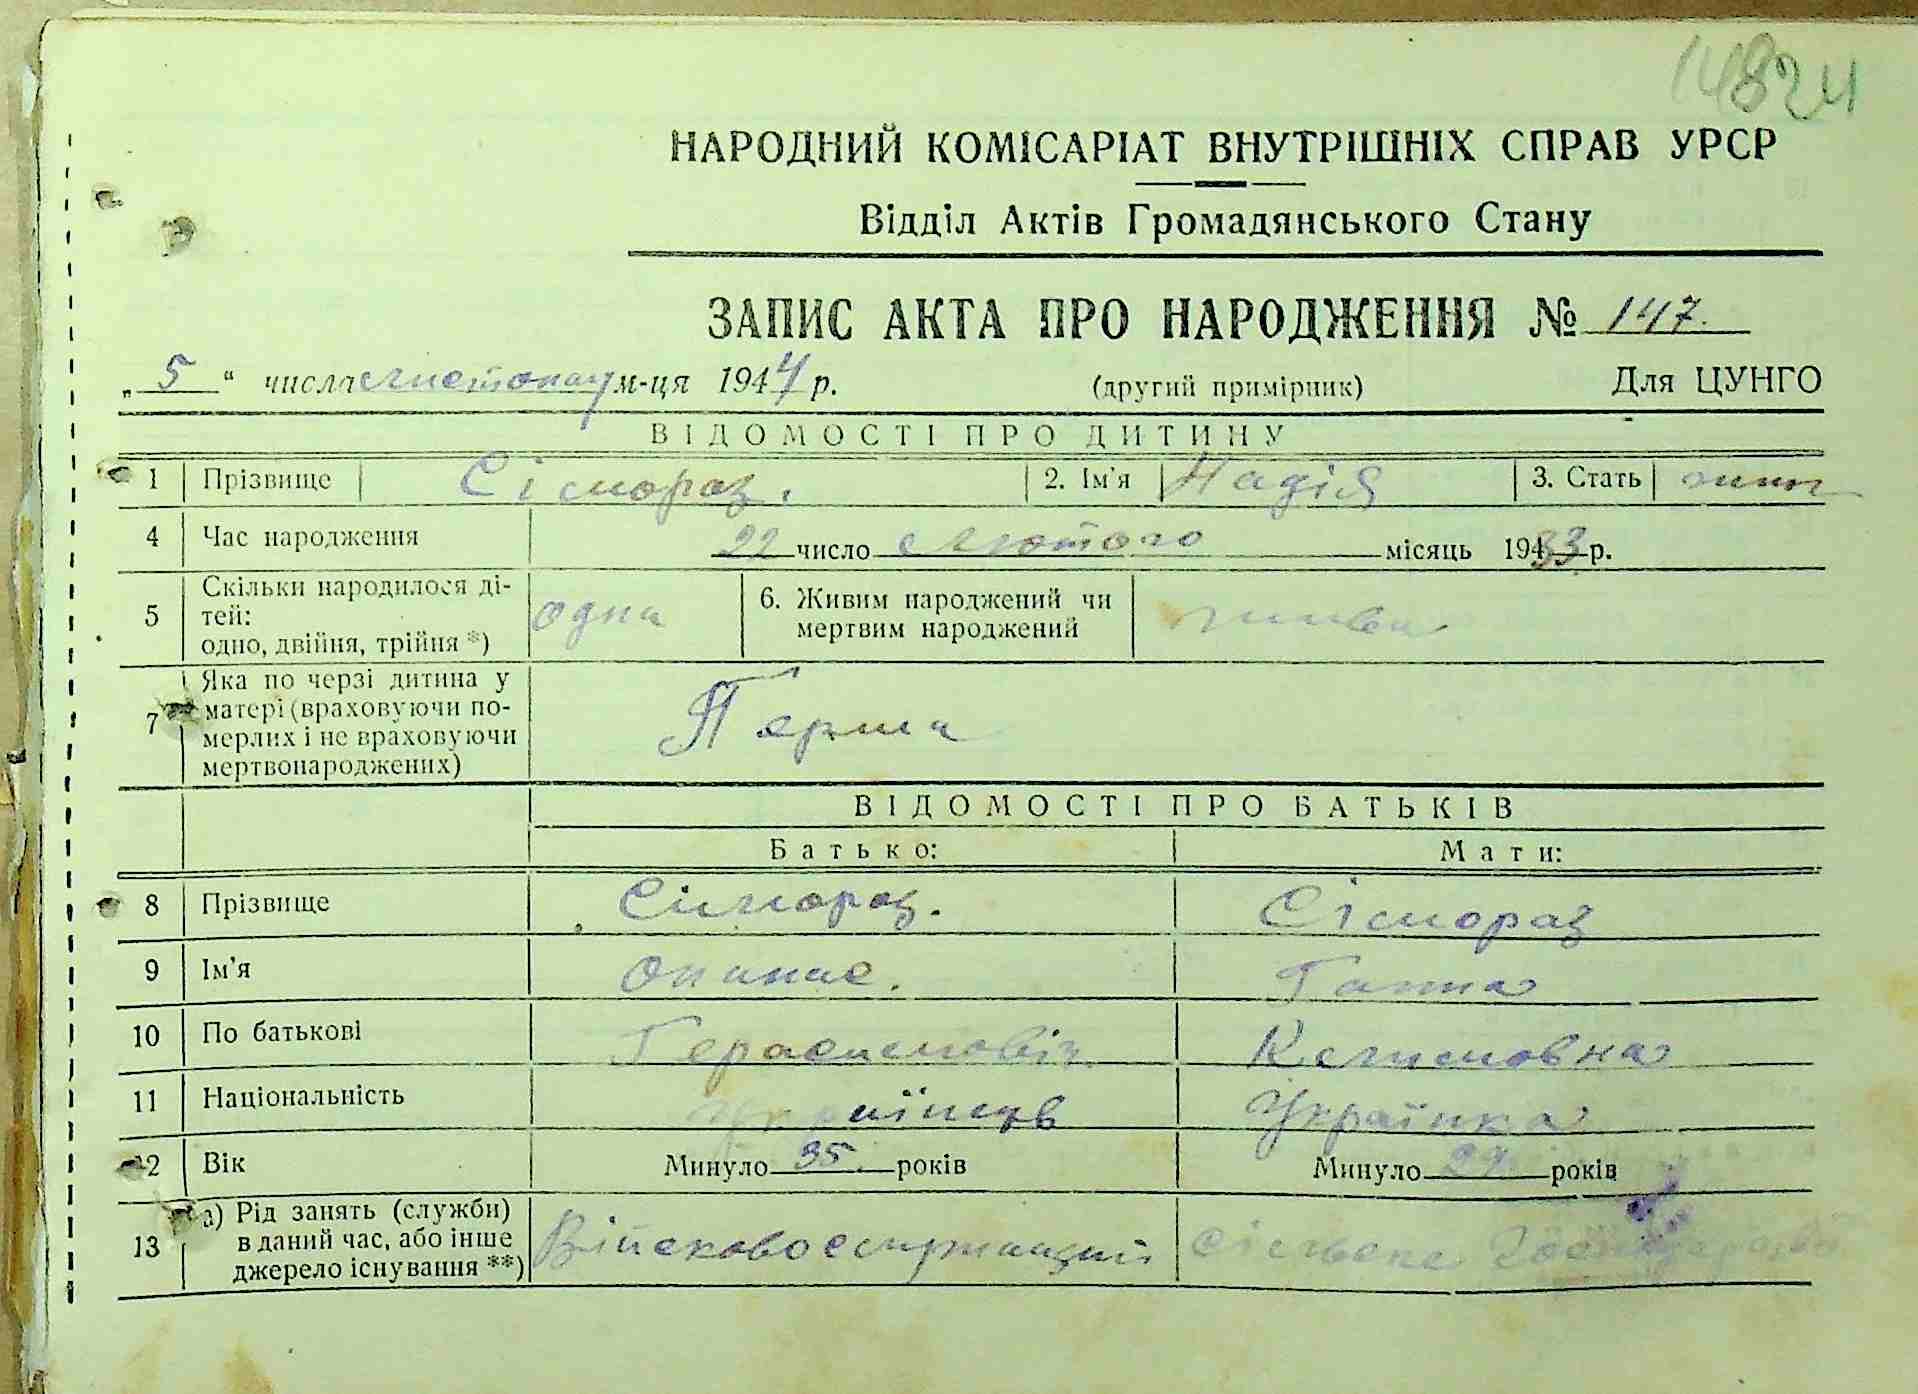 14824
НАРОДНИЙ КОМІСАРІАТ ВНУТРІШНІХ СПРАВ УРСР
Відділ Актів Громадянського Стану
ЗАПИС АКТА ПРО НАРОДЖЕННЯ № 147.
„5“ числа листопад м-ця 1944 р. (другий примірник) Для ЦУНГО
ВІДОМОСТІ ПРО ДИТИНУ
1 Прізвище Сімораз. 2. Ім'я Надія 3. Стать жіноч
4 Час народження 22 число лютого місяць 1933 р.
5 Скільки народилося ді-
тей:
одно, двійня, трійня *) одна 6. Живим народжений чи
мертвим народжений жива
7 Яка по черзі дитина у
матері (враховуючи по-
мерлих і не враховуючи
мертвонароджених) Перша
ВІДОМОСТІ ПРО БАТЬКІВ
Батько: Мати:
8 Прізвище Сімораз. Сімораз
9 Ім'я Опанас. Ганна
10 По батькові Герасимовіч Климовна
11 Національність Українець Українка
12 Вік Минуло 35 років Минуло 29 років
13 а) Рід занять (служби)
в даний час, або інше
джерело існування **) Війсковослужащий сільске